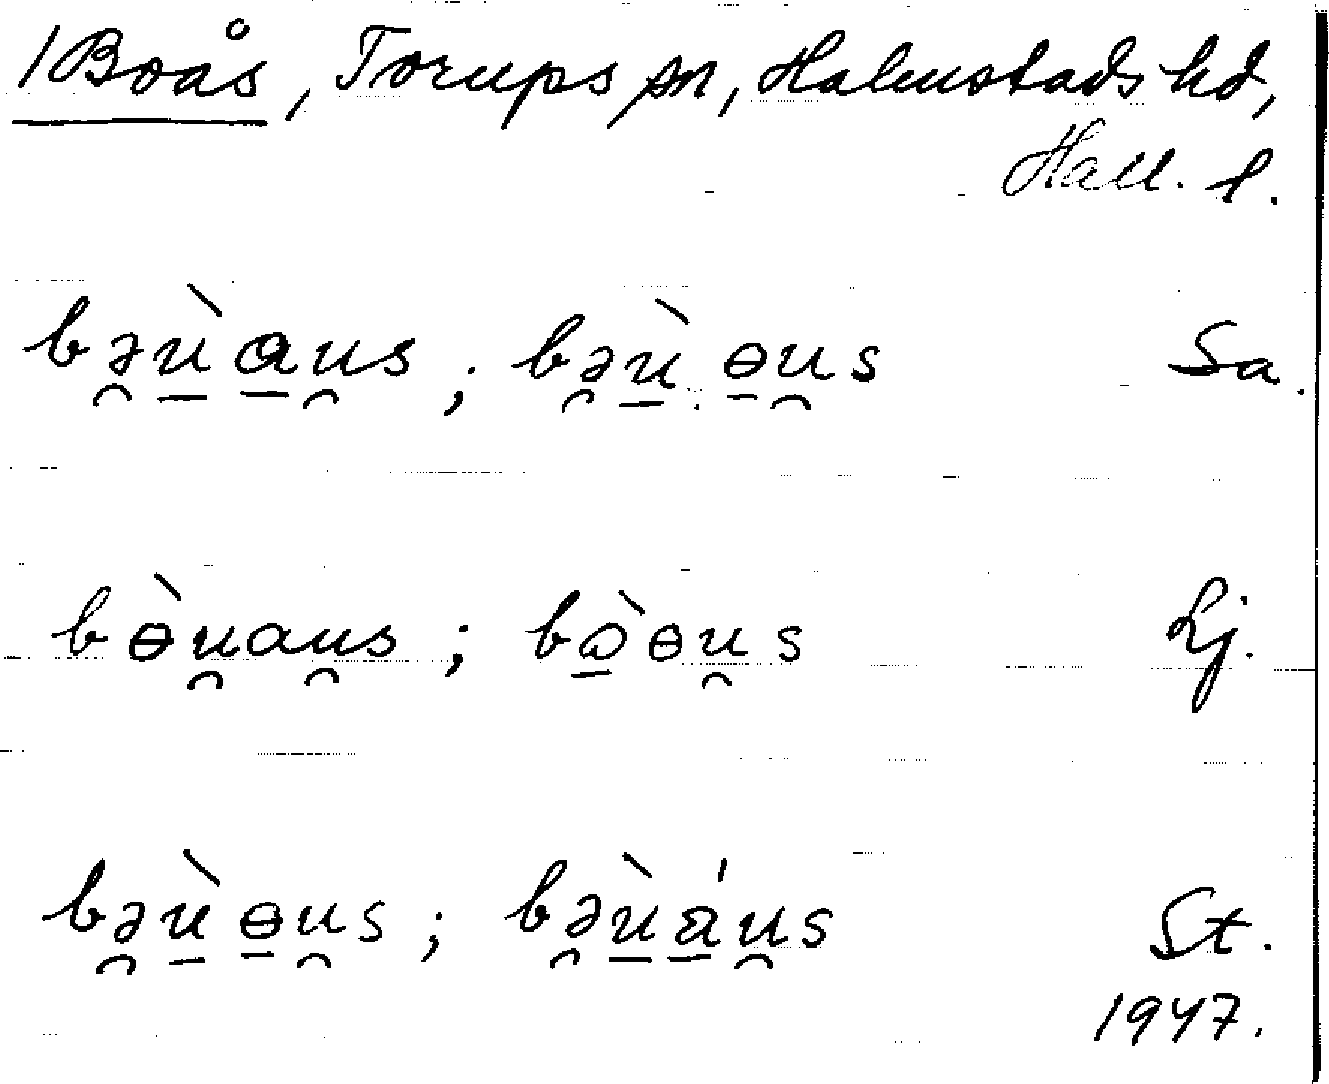 1 Boås, Torups sn, Halmstads hd,
Hall. l.
bə̯ù̱a̱u̯s ; bə̯ù̱ɵ̱u̯s Sa.
bɵ̀u̯au̯s ; bɔ̱̀ɵu̯s Lj.
bə̯ù̱ɵ̱u̯s ; bə̯ù̱á̱u̯s St.
1947.